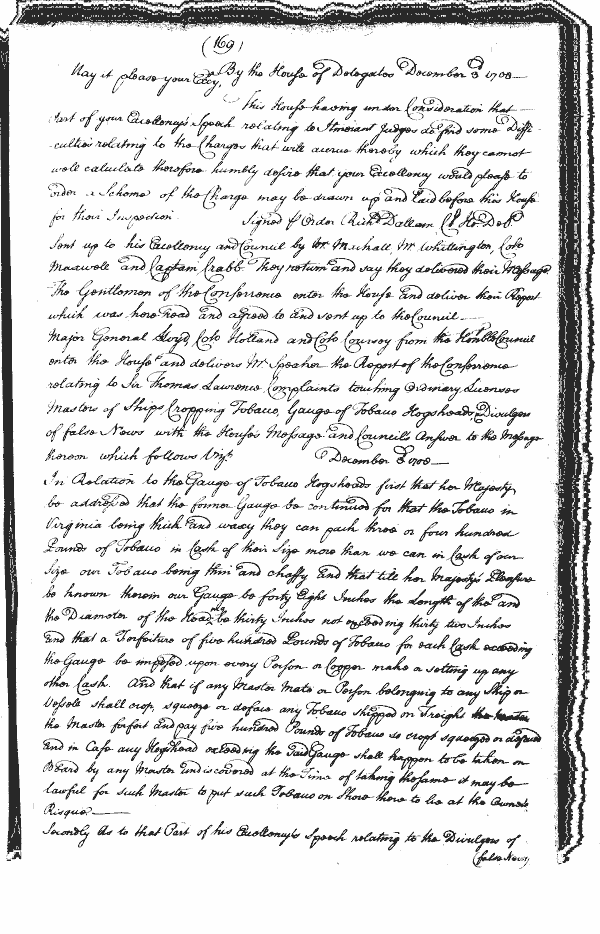 (169)
May it please your Excy, By the House of Delegates December 3d 1708
This House having under Consideration that
Part of your Excellency's Speech relating to Itinerant Judges do find some Diffi-
culties relating to the Charges that will accrue thereby which they cannot
well calculate therefore humbly desire that your Excellency would please to
order a Scheme of the Charge may be drawn up and laid before this House
for their Inspection Signed p Order Richd Dallam Cl Ho. Del.
Sent up to his Excellency and Council by Mr Muschall, Mr Whittington, Colo
Maxwell and Captain Crabb They return and say they delivered their Message
The Gentlemen of the Conference enter the House and deliver their Report
which was here Read and agreed to and sent up to the Council
Major General Lloyd, Colo Holland and Colo Coursey from the Honble Council
enter the House and delivers Mr Speaker the Report of the Conference
relating to Sir Thomas Lawrence Complaints touching Ordinary Licenses
Masters of Ships Cropping Tobacco, Gauge of Tobacco Hogsheads, Divulgers
of false News with the House's Message and Council's Answer to the Message
thereon which follows Vizt.
December 3d 1708
In Relation to the Gauge of Tobacco Hogsheads first that her Majesty
be addressed that the former Gauge be continued for that the Tobacco in
Virginia being thick and waxy they can pack three or four hundred
Pounds of Tobacco in Cask of their Size more than we can in Cask of our
Size our Tobacco being thin and chaffy and that till her Majestys Pleasure
be known therein our Gauge be forty Eight Inches the Length of the and
the Diameter of the Head be thirty Inches not exceeding thirty two Inches
And that a Forfeiture of five hundred Pounds of Tobacco for each Cask exceeding
the Gauge be imposed upon every Person or Cooper make a setting up any
other Cask. And that if any Master Mate or Person belonging to any Ship or
Vessell shall crop, squeeze or deface any Tobacco shipped on Freight
the Master forfeit and pay five hundred Pounds of Tobacco so cropt squeezed or defaced
And in Case any Hogshead exceeding the said Gauge shall happen to be taken on
Board by any Master undiscovered at the Time of taking the same it may be
lawful for such Master to put such Tobacco on Shore there to lie at the Owner's
Risque
Secondly As to that Part of his Excellency's Speech relating to the Divulgers of
(false News)